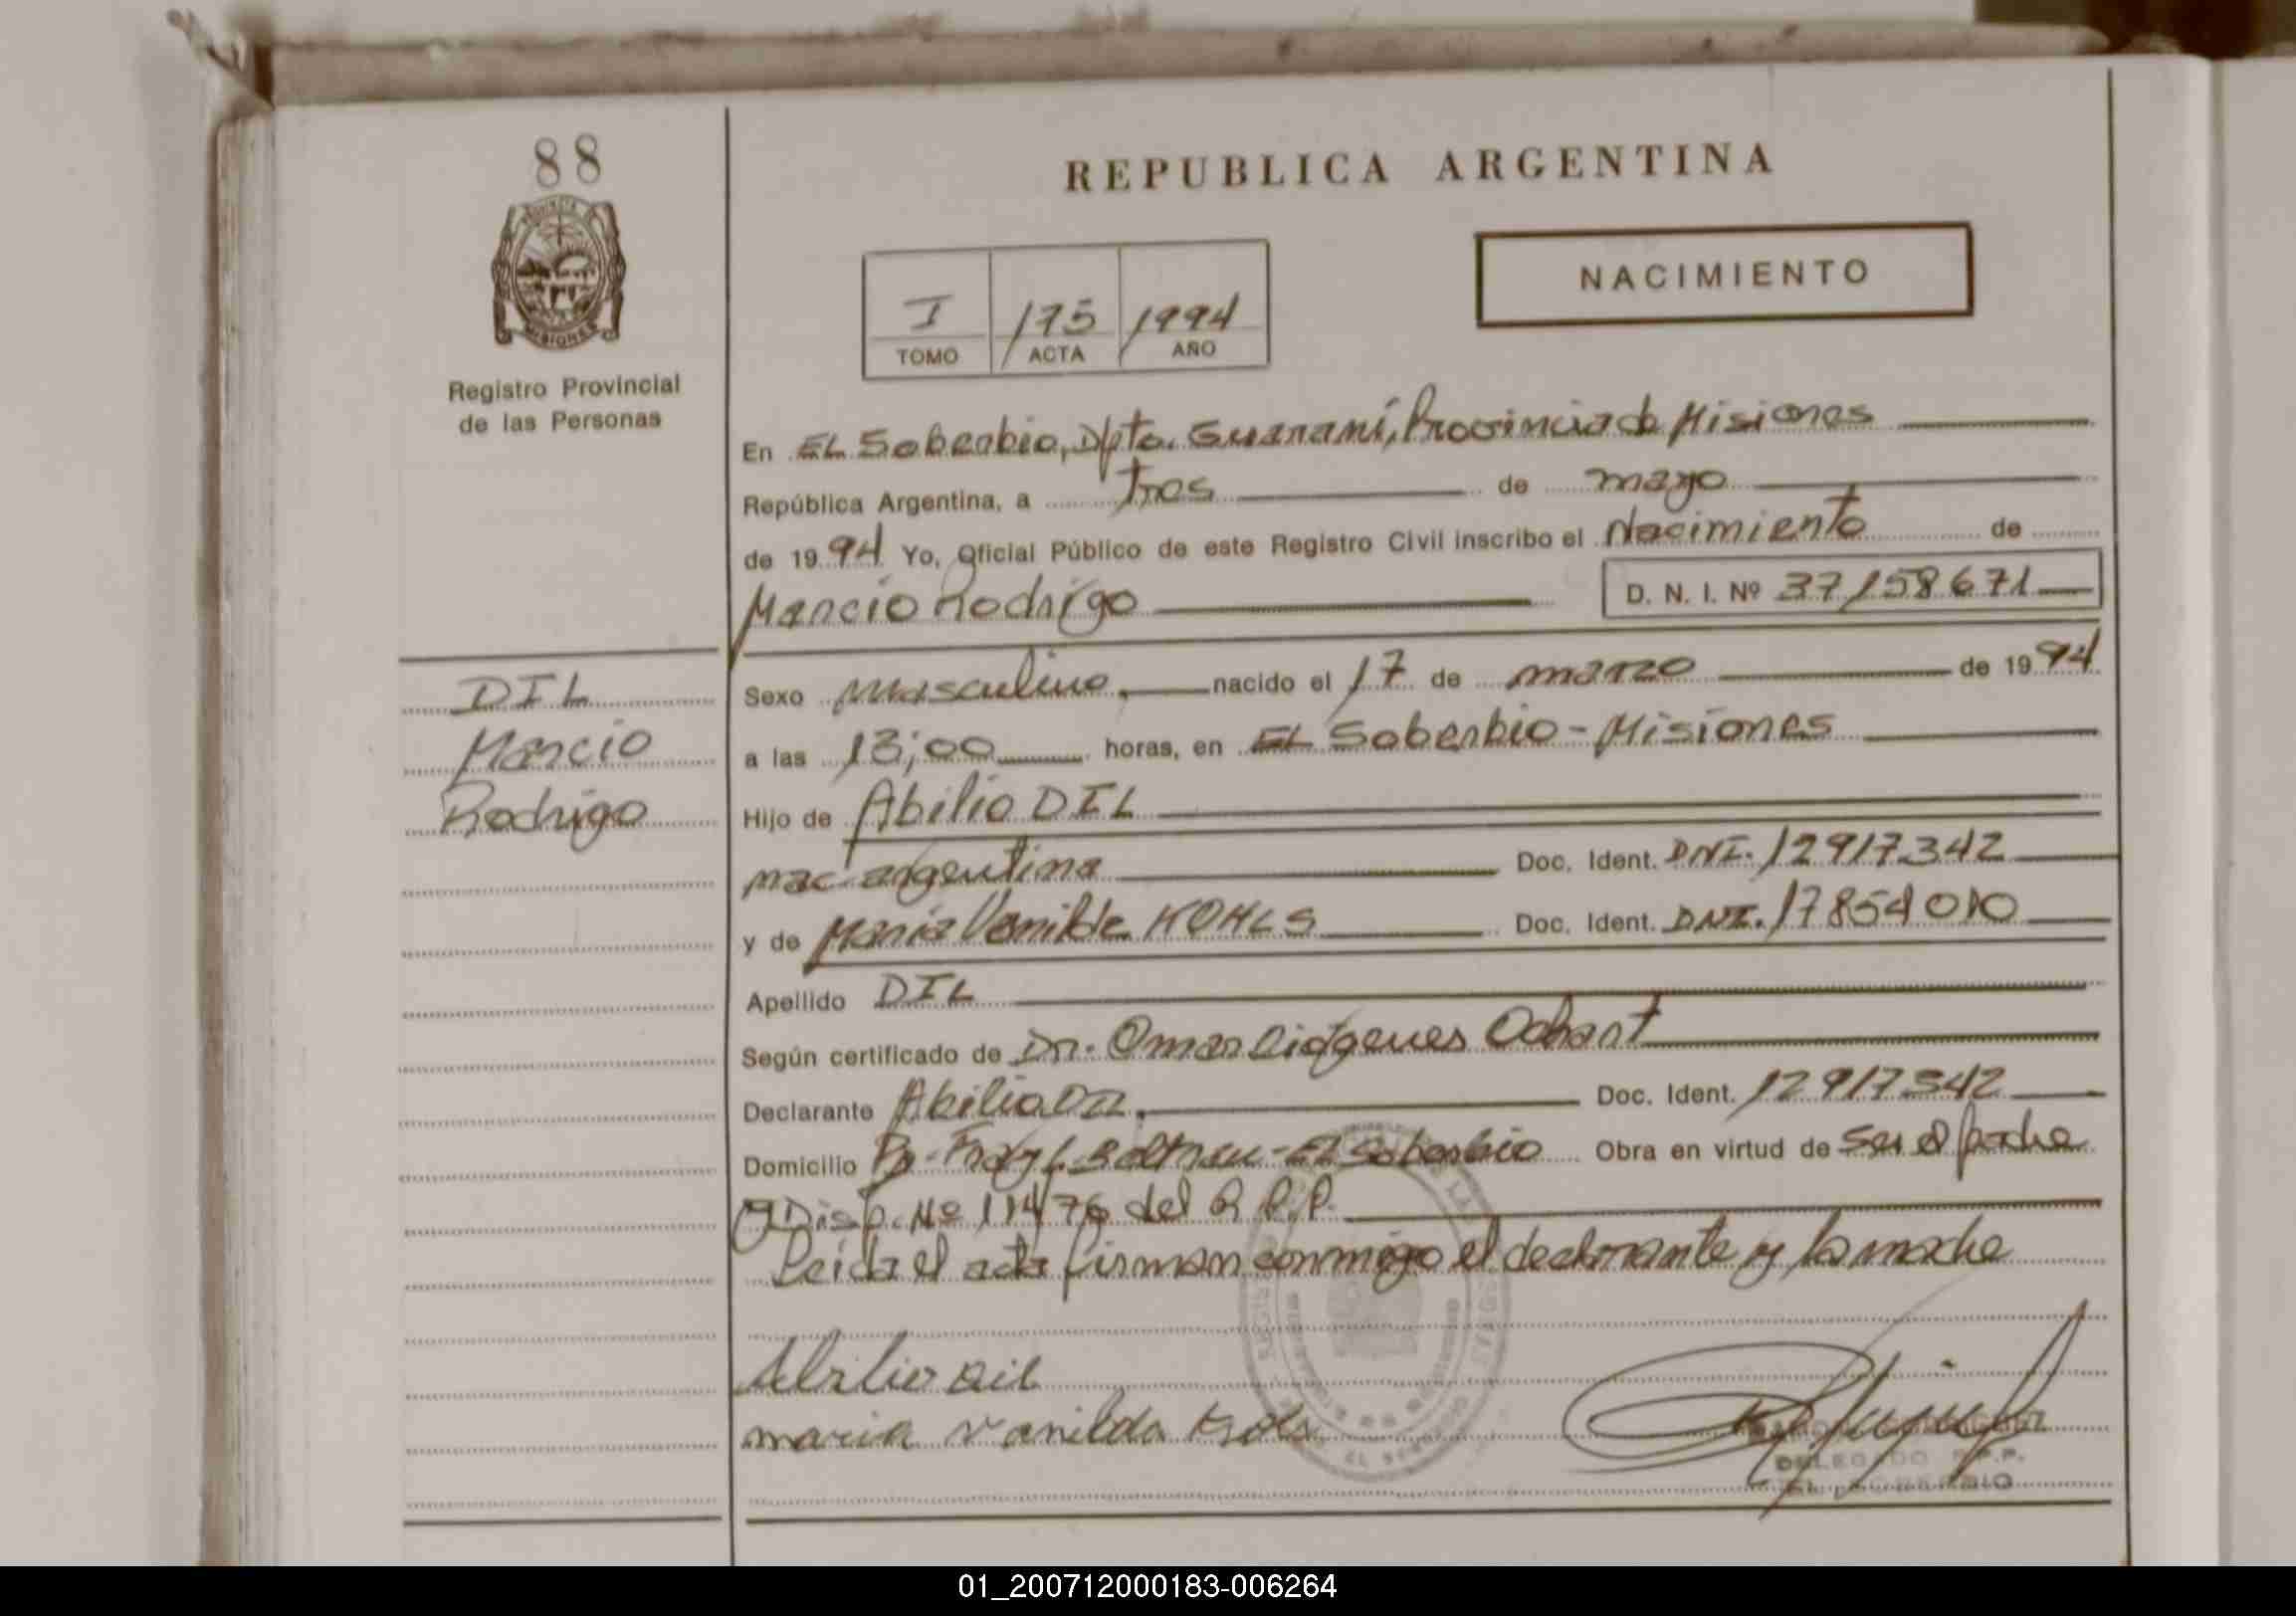 88
PROVINCIA DE
MISIONES
Registro Provincial
de las Personas
DIL
Marcio
Rodrigo
REPUBLICA ARGENTINA
NACIMIENTO
I 175 1994
TOMO ACTA AÑO
En EL Soberbio, Dpto. Guaraní, Provincia de Misiones
República Argentina, a tres de mayo
de 1994 Yo, Oficial Público de este Registro Civil inscribo el Nacimiento de
Marcio Rodrigo D. N. I. Nº 37158671
Sexo masculino, nacido el 17 de marzo de 1994
a las 13;00 horas, en EL Soberbio - Misiones
Hijo de Abilio DIL
nac. argentina Doc. Ident. DNI. 12917342
y de María Vanilde KOHLS Doc. Ident. DNI. 17854010
Apellido DIL
Según certificado de Dr. Omar Diógenes
Declarante Abilio DIL, Doc. Ident. 12917342
Domicilio Fray L. Beltran - EL Soberbio Obra en virtud de ser el padre
y Disp. Nº 114/76 del R.P.P.
Leída el acta firman conmigo el declarante y la madre
Abilio Dil
maria vanilda
DELEGADO R.P.P.
EL SOBERBIO
01_200712000183-006264